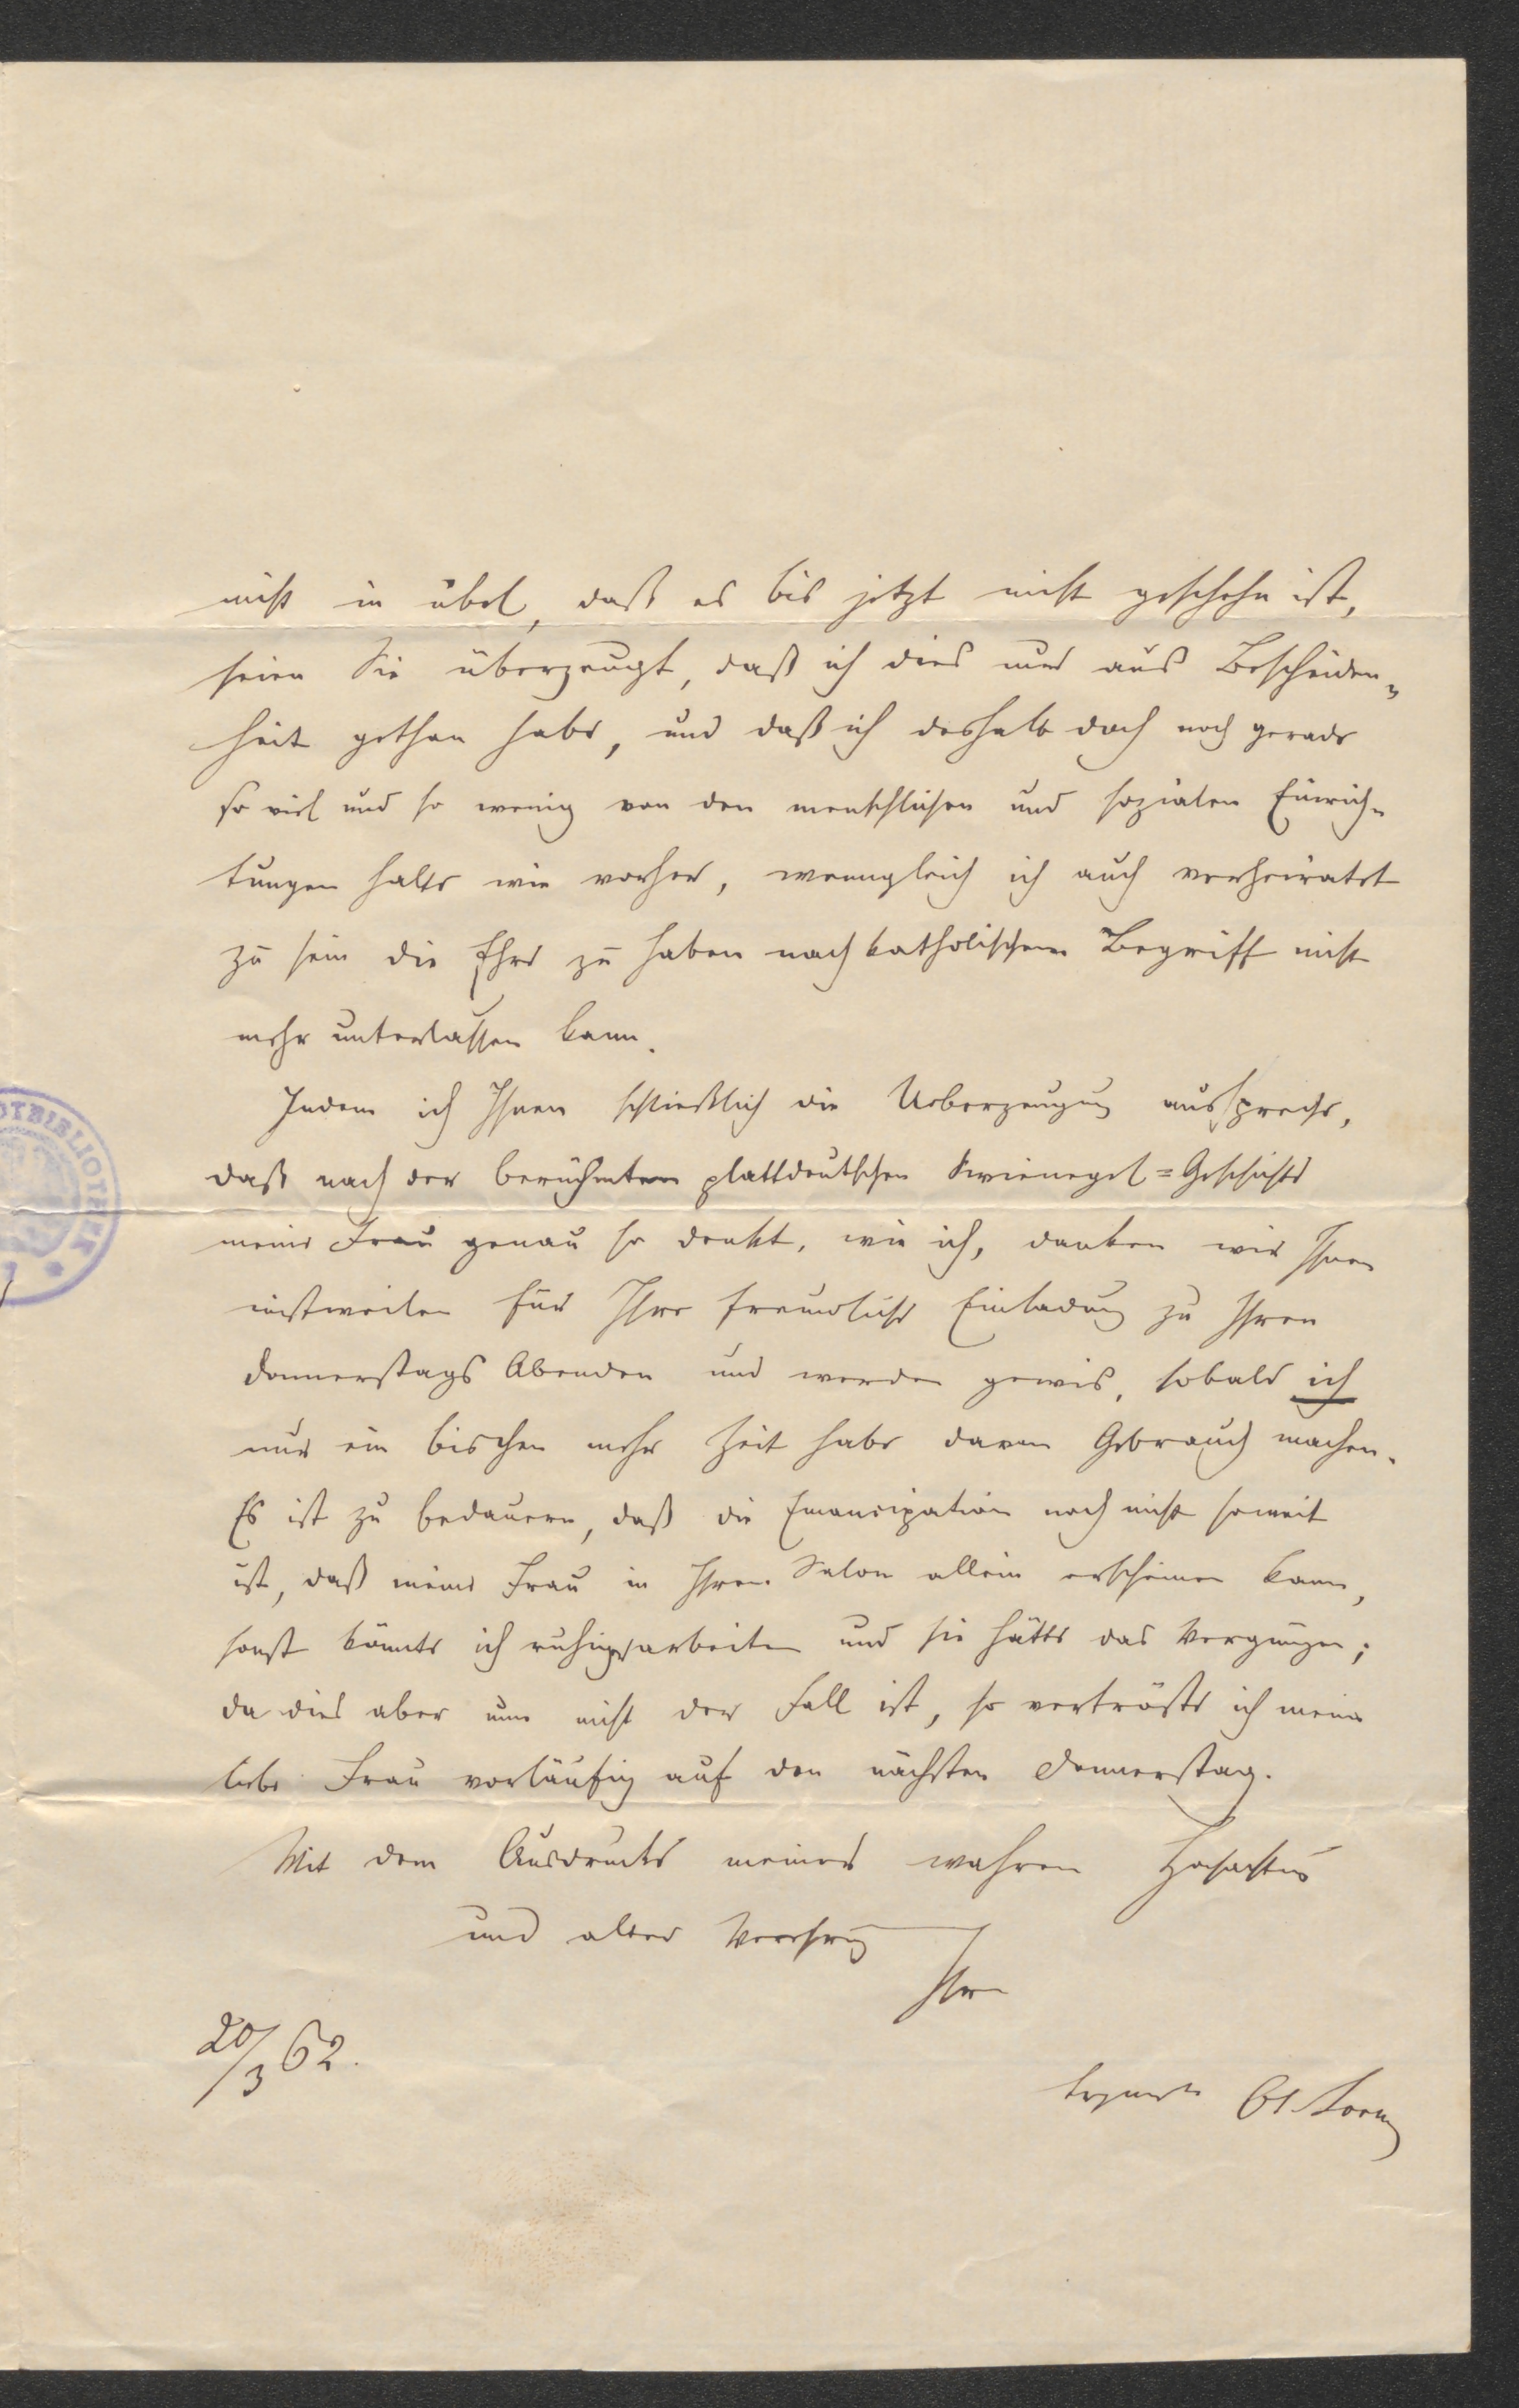 nicht in übel, daß es bis jetzt nicht geschehn ist,
seien Sie überzeugt, daß ich dies nur aus Bescheiden-
heit gethan habe, und daß ich deshalb doch noch gerade
so viel und so wenig von den menschlichen und sozialen Einrich-
tungen halte wie vorher, wenngleich ich auch verheiratet
zu sein die Ehre zu haben nach katholischem Begriff nicht
mehr unterlassen kann.
Indem ich Ihnen schließlich die Ueberzeugung ausspreche,
daß nach der berühmten plattdeutschen Swienegel=Geschichte
meine Frau genau so denkt, wie ich, danken wir Ihnen
einstweilen für Ihre freundliche Einladung zu Ihren
Donnerstags Abenden und werden gewis, sobald ich
nur ein bischen mehr Zeit habe davon Gebrauch machen.
Es ist zu bedauern, daß die Emancipation noch nicht soweit
ist, daß meine Frau in Ihrem Salon allein erscheinen kann,
sonst könnte ich ruhig arbeiten und sie hätte das Vergnügen;
da dies aber nun nicht der Fall ist, so vertröste ich meine
liebe Frau vorläufig auf den nächsten Donnerstag.
Mit dem Ausdrucke meiner wahren Hochachtung
und alter Verehrung
Ihr
20/3 62.
ergebenster O Lorenz
OTBIBLIOTHEK